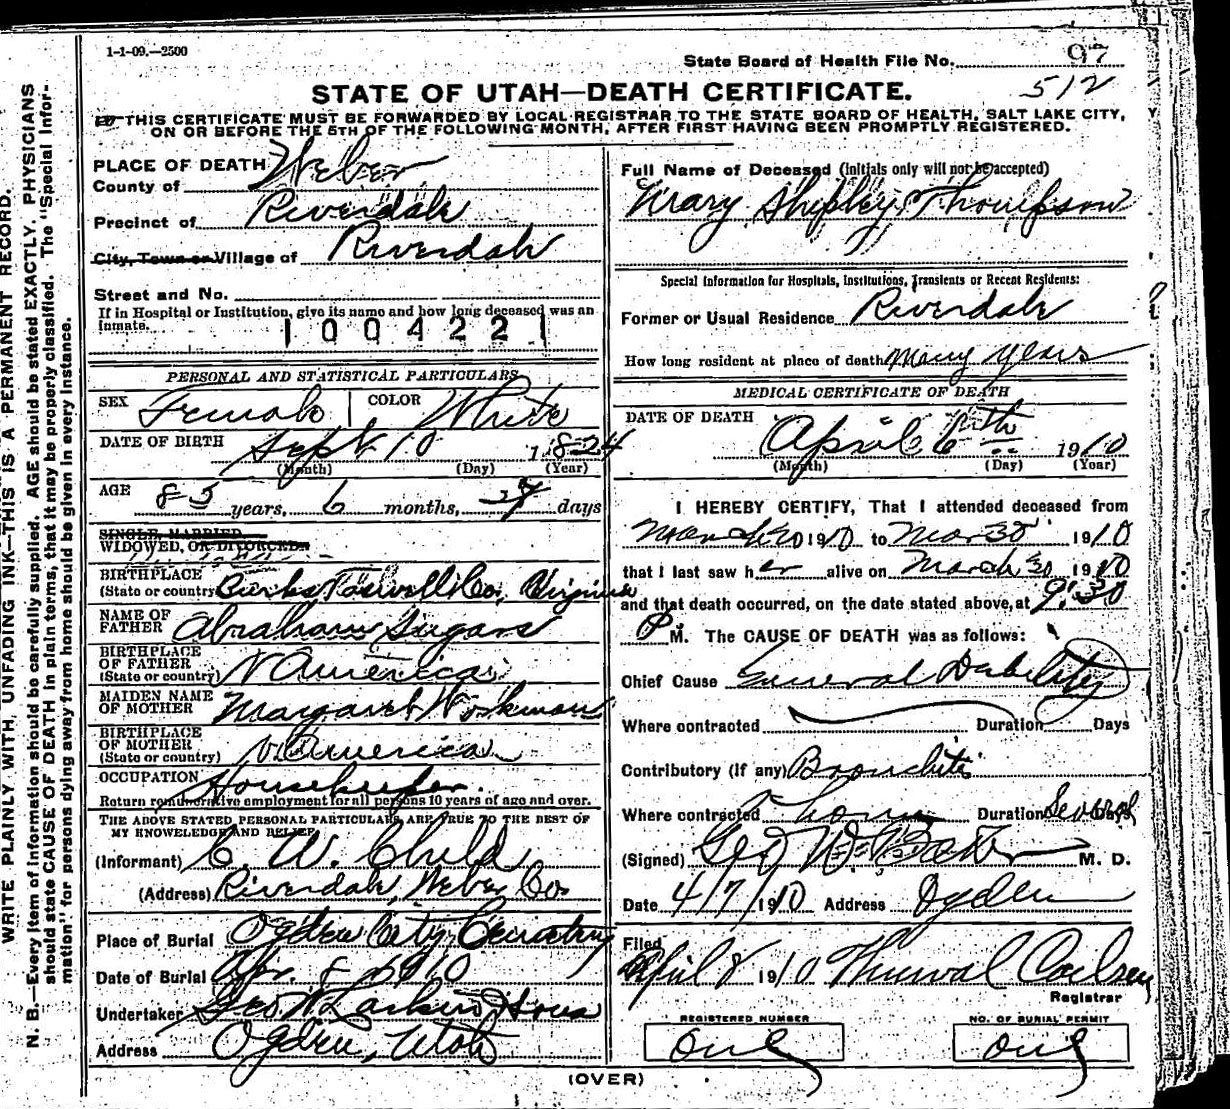 1-1-09.—2500
State Board of Health File No. 97
512
STATE OF UTAH—DEATH CERTIFICATE.
THIS CERTIFICATE MUST BE FORWARDED BY LOCAL REGISTRAR TO THE STATE BOARD OF HEALTH, SALT LAKE CITY,
ON OR BEFORE THE 5TH OF THE FOLLOWING MONTH, AFTER FIRST HAVING BEEN PROMPTLY REGISTERED.
WRITE PLAINLY WITH UNFADING INK—THIS IS A PERMANENT RECORD.
N. B.—Every item of information should be carefully supplied. AGE should be stated EXACTLY. PHYSICIANS
should state CAUSE OF DEATH in plain terms, that it may be properly classified. The "Special Infor-
mation" for persons dying away from home should be given in every instance.
PLACE OF DEATH
County of Weber
Precinct of Riverdale
City, Town or Village of Riverdale
Street and No.
If in Hospital or Institution, give its name and how long deceased was an
Inmate.
1004221
PERSONAL AND STATISTICAL PARTICULARS
SEX Female COLOR White
DATE OF BIRTH Sept 10 1824
(Month) (Day) (Year)
AGE 85 years, 6 months, 27 days
SINGLE, MARRIED
WIDOWED, OR DIVORCED
BIRTHPLACE
(State or country) Burks Taswell Co, Virginia
NAME OF
FATHER Abraham
BIRTHPLACE
OF FATHER
(State or country) N America
MAIDEN NAME
OF MOTHER Margaret Workman
BIRTHPLACE
OF MOTHER
(State or country) N. America
OCCUPATION Housekeeper.
Return remunerative employment for all persons 10 years of age and over.
THE ABOVE STATED PERSONAL PARTICULARS ARE TRUE TO THE BEST OF
MY KNOWELEDGE AND BELIEF
(Informant) C. W. Child
(Address) Riverdale, Weber Co
Place of Burial Ogden City Cemetery
Date of Burial Apr. 8 1910
Undertaker Geo W Larkin & Sons
Address Ogden, Utah
Full Name of Deceased (initials only will not be accepted)
Mary Shipley Thompson
Special Information for Hospitals, Institutions, Transients or Recent Residents:
Former or Usual Residence Riverdale
How long resident at place of death many years
MEDICAL CERTIFICATE OF DEATH
DATE OF DEATH April 6th 1910
(Month) (Day) (Year)
I HEREBY CERTIFY, That I attended deceased from
March 20 1910 to Mar 30 1910
that I last saw her alive on March 30 1910
and that death occurred, on the date stated above, at 9:30
P M. The CAUSE OF DEATH was as follows:
Chief Cause General Debility
Where contracted Duration Days
Contributory (If any) Bronchitis
Where contracted home Duration Several Days
(Signed) Geo W. Baker M. D.
Date 4/7/1910 Address Ogden
Filed
April 8 1910 Thurval
Registrar
REGISTERED NUMBER
NO. OF BURIAL PERMIT
orig
orig
(OVER)